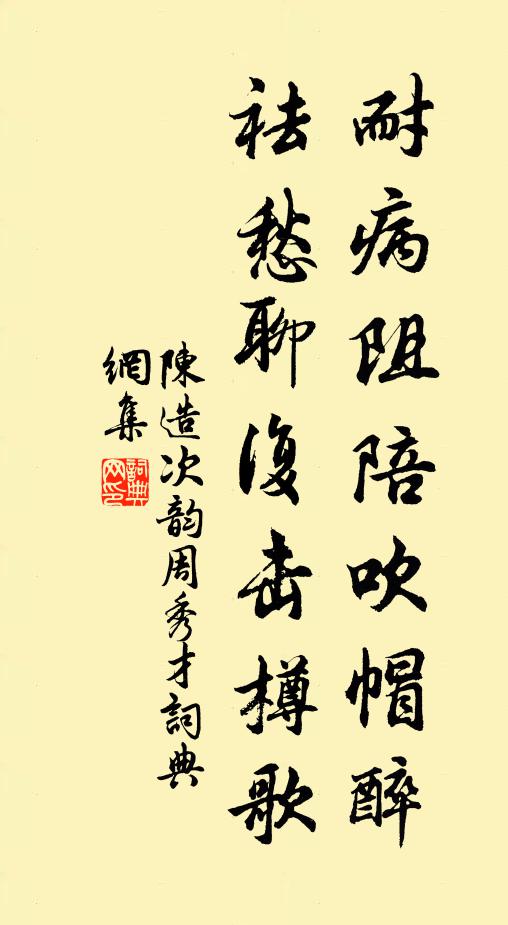 耐病阻陪吹帽醉
祛愁聊復击樽歌
陳造次韵周秀才詞典
網集
詞典
网印